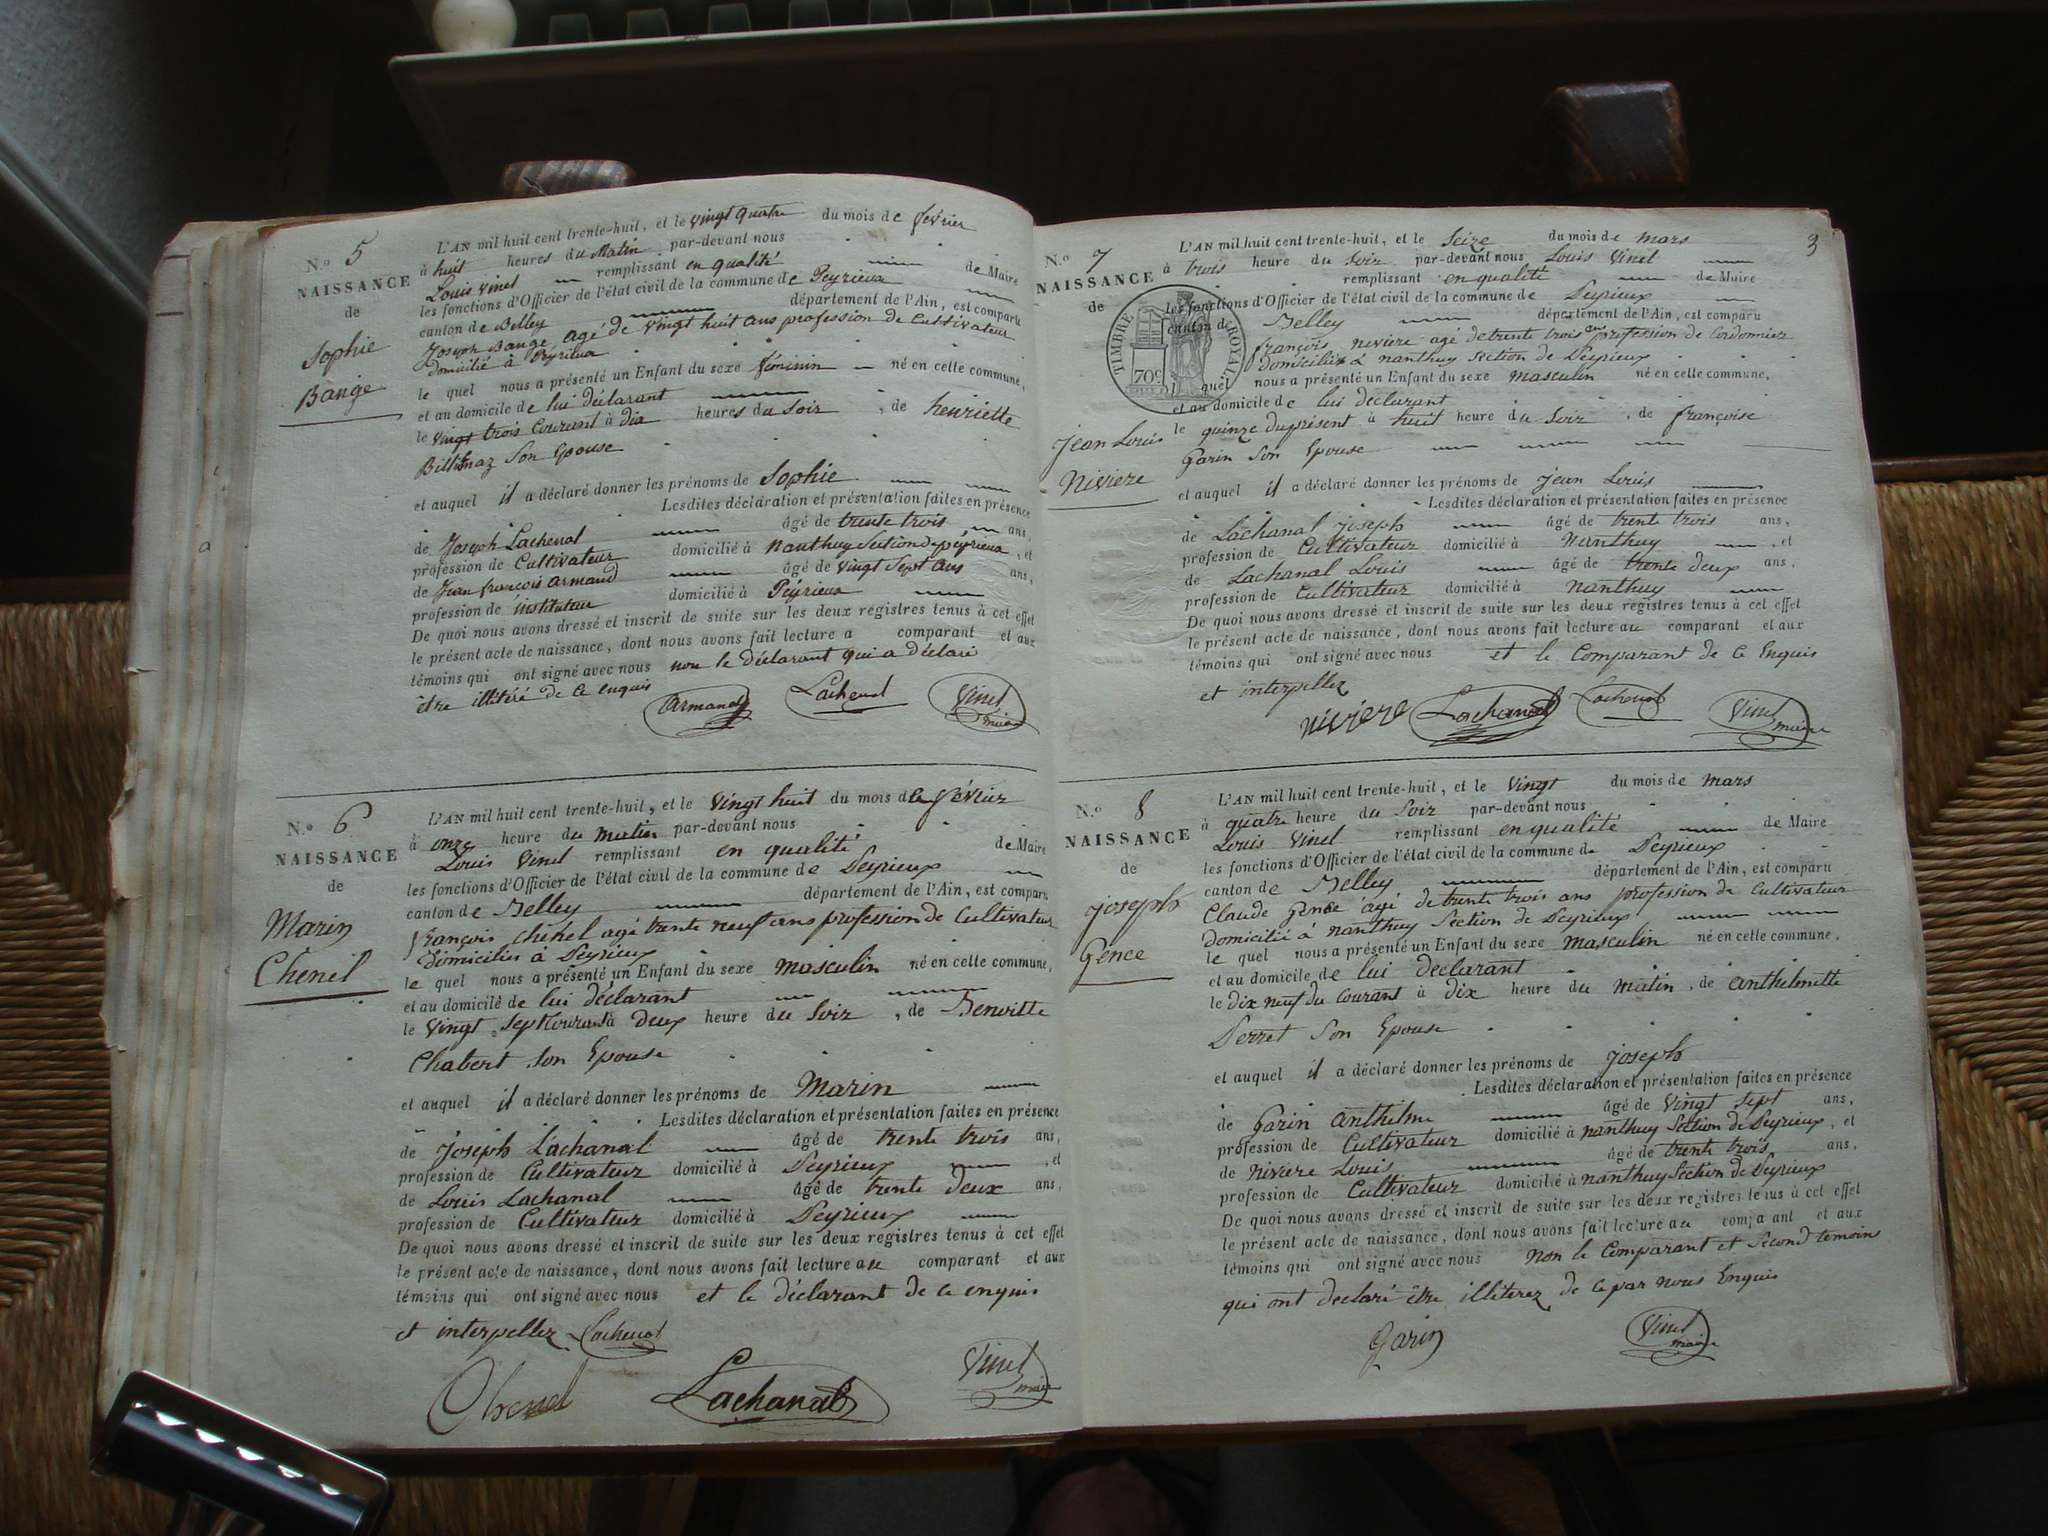 N.° 5
NAISSANCE
de
Sophie
Bange
L'AN mil huit cent trente-huit, et le vingt quatre du mois de février
à huit heures du Matin par-devant nous
Louis Vinet remplissant en qualité de Maire
les fonctions d'Officier de l'état civil de la commune de Peyrieux
canton de Belley département de l'Ain, est comparu
Joseph Bange agé de vingt huit ans profession de Cultivateur
domicilié à Peyrieux
le quel nous a présenté un Enfant du sexe féminin né en cette commune,
et au domicile de lui déclarant
le vingt trois Courant à dix heures du soir, de henriette
Son Epouse
et auquel il a déclaré donner les prénoms de Sophie
Lesdites déclaration et présentation faites en présence
de Joseph Lachenal âgé de trente trois ans,
profession de Cultivateur domicilié à Nanthuy Section de peyrieux, et
de Jean françois armand âgé de vingt Sept ans ans,
profession de instituteur domicilié à Peyrieux
De quoi nous avons dressé et inscrit de suite sur les deux registres tenus à cet effet
le présent acte de naissance, dont nous avons fait lecture a comparant et aux
témoins qui ont signé avec nous non le déclarant qui a déclaré
être illitéré de ce enquis
Armand Lachenal Vinet maire
N.° 6
NAISSANCE
de
Marin
Chenel
L'AN mil huit cent trente-huit, et le Vingt huit du mois de février
à onze heure du matin par-devant nous
Louis Vinet remplissant en qualité de Maire
les fonctions d'Officier de l'état civil de la commune de Peyrieux
canton de Belley département de l'Ain, est comparu
françois chenel agé trente neuf ans profession de Cultivateur
domicilier à Peyrieux
le quel nous a présenté un Enfant du sexe masculin né en cette commune,
et au domicile de lui déclarant
le Vingt Sept Courant à deux heure du Soir, de Benoitte
Chabert son Epouse
et auquel il a déclaré donner les prénoms de Marin
Lesdites déclaration et présentation faites en présence
de Joseph Lachanal âgé de trente trois ans,
profession de Cultivateur domicilié à Peyrieux, et
de Louis Lachanal âgé de trente deux ans,
profession de Cultivateur domicilié à Peyrieux
De quoi nous avons dressé et inscrit de suite sur les deux registres tenus à cet effet
le présent acte de naissance, dont nous avons fait lecture au comparant et aux
témoins qui ont signé avec nous et le déclarant de ce enquis
et interpellez Lachenal
Chenel Lachanal Vinet maire
3
N.° 7
NAISSANCE
de
Jean Louis
Niviere
TIMBRE ROYAL
70c
L'AN mil huit cent trente-huit, et le Seize du mois de mars
à trois heure du Soir par-devant nous Louis Vinet
remplissant en qualité de Maire
les fonctions d'Officier de l'état civil de la commune de Peyrieux
canton de Belley département de l'Ain, est comparu
françois niviere agé de trente trois ans profession de Cordonnier
domicilié à nanthuy Section de Peyrieux
le quel nous a présenté un Enfant du sexe masculin né en cette commune,
et au domicile de lui déclarant
le quinze du présent à huit heure du Soir, de françoise
Garin Son Epouse
et auquel il a déclaré donner les prénoms de Jean Louis
Lesdites déclaration et présentation faites en présence
de Lachanal Joseph âgé de trente trois ans,
profession de Cultivateur domicilié à Nanthuy, et
de Lachanal Louis âgé de trente deux ans,
profession de Cultivateur domicilié à nanthuy
De quoi nous avons dressé et inscrit de suite sur les deux registres tenus à cet effet
le présent acte de naissance, dont nous avons fait lecture au comparant et aux
témoins qui ont signé avec nous et le Comparant de ce Enquis
et interpellez
niviere Lachanal Lachenal Vinet maire
N.° 8
NAISSANCE
de
Joseph
Gence
L'AN mil huit cent trente-huit, et le Vingt du mois de mars
à quatre heure du Soir par-devant nous
Louis Vinet remplissant en qualité de Maire
les fonctions d'Officier de l'état civil de la commune de Peyrieux
canton de Belley département de l'Ain, est comparu
Claude Gence agé de trente trois ans profession de Cultivateur
domicilié à nanthuy Section de Peyrieux
le quel nous a présenté un Enfant du sexe masculin né en cette commune,
et au domicile de lui déclarant
le dix neuf du courant à dix heure du matin, de anthelmette
Perret Son Epouse
et auquel il a déclaré donner les prénoms de Joseph
Lesdites déclaration et présentation faites en présence
de Garin anthelme âgé de Vingt sept ans,
profession de Cultivateur domicilié à nanthuy Section de Peyrieux, et
de niviere Louis âgé de trente trois ans,
profession de Cultivateur domicilié à nanthuy Section de Peyrieux
De quoi nous avons dressé et inscrit de suite sur les deux registres tenus à cet effet
le présent acte de naissance, dont nous avons fait lecture au comparant et aux
témoins qui ont signé avec nous non le Comparant et Second temoins
qui ont declaré être illiterez de ce par nous Enquis
Garin Vinet maire